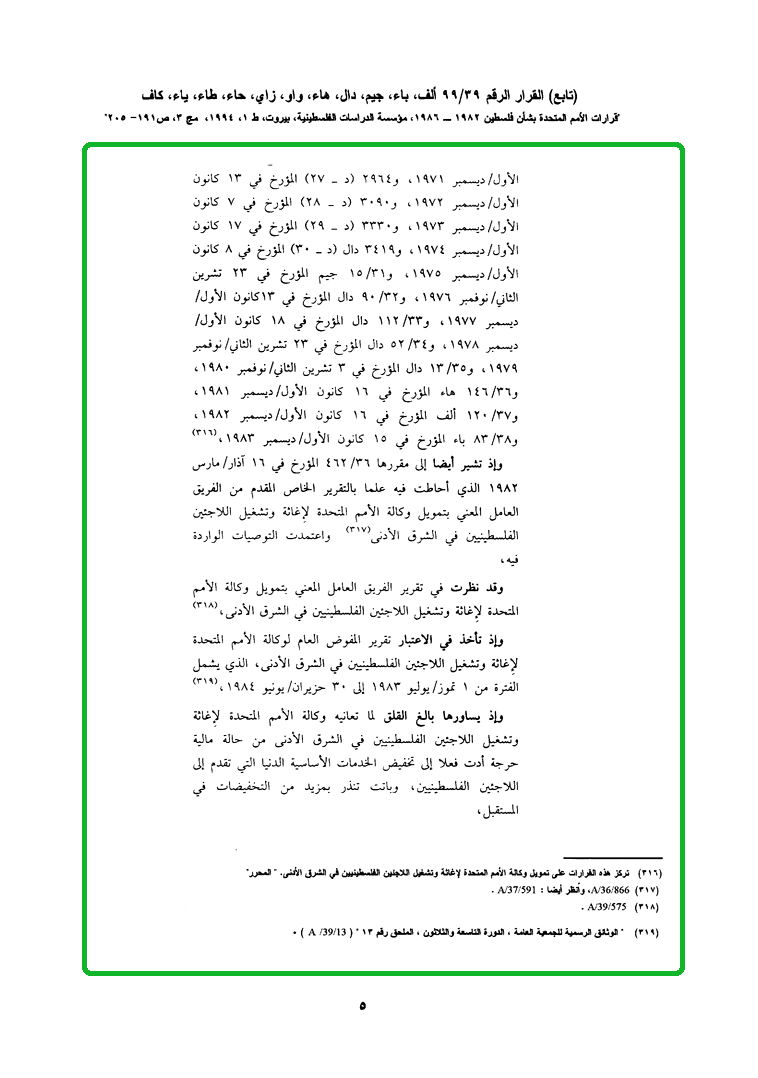 (تابع) القرار الرقم ٩٩/٣٩ ألف، باء، جيم، دال، هاء، واو، زاي، حاء، طاء، ياء، كاف
"قرارات الأمم المتحدة بشأن فلسطين ١٩٨٢ ــ ١٩٨٦، مؤسسة الدراسات الفلسطينية، بيروت، ط ١، ١٩٩٤، مج ٣، ص١٩١- ٢٠٥"
الأول/ديسمبر ١٩٧١، و٢٩٦٤ (د ـ ٢٧) المؤرخ في ١٣ كانون
الأول/ديسمبر ١٩٧٢، و٣٠٩٠ (د ـ ٢٨) المؤرخ في ٧ كانون
الأول/ديسمبر ١٩٧٣، و٣٣٣٠ (د ـ ٢٩) المؤرخ في ١٧ كانون
الأول/ديسمبر ١٩٧٤، و٣٤١٩ دال (د ـ ٣٠) المؤرخ في ٨ كانون
الأول/ديسمبر ١٩٧٥، و١٥/٣١ جيم المؤرخ في ٢٣ تشرين
الثاني/نوفمبر ١٩٧٦، و٩٠/٣٢ دال المؤرخ في ١٣كانون الأول/
ديسمبر ١٩٧٧، و١١٢/٣٣ دال المؤرخ في ١٨ كانون الأول/
ديسمبر ١٩٧٨، و٥٢/٣٤ دال المؤرخ في ٢٣ تشرين الثاني/نوفمبر
١٩٧٩، و١٣/٣٥ دال المؤرخ في ٣ تشرين الثاني/نوفمبر ١٩٨٠،
و١٤٦/٣٦ هاء المؤرخ في ١٦ كانون الأول/ديسمبر ١٩٨١،
و١٢٠/٣٧ ألف المؤرخ في ١٦ كانون الأول/ديسمبر ١٩٨٢،
و٨٣/٣٨ باء المؤرخ في ١٥ كانون الأول/ديسمبر ١٩٨٣،(٣١٦)
وإذ تشير أيضا إلى مقررها ٤٦٢/٣٦ المؤرخ في ١٦ آذار/مارس
١٩٨٢ الذي أحاطت فيه علما بالتقرير الخاص المقدم من الفريق
العامل المعني بتمويل وكالة الأمم المتحدة لإغاثة وتشغيل اللاجئين
الفلسطينيين في الشرق الأدنى(٣١٧) واعتمدت التوصيات الواردة
فيه،
وقد نظرت في تقرير الفريق العامل المعني بتمويل وكالة الأمم
المتحدة لإغاثة وتشغيل اللاجئين الفلسطينيين في الشرق الأدنى،(٣١٨)
وإذ تأخذ في الاعتبار تقرير المفوض العام لوكالة الأمم المتحدة
لإغاثة وتشغيل اللاجئين الفلسطينيين في الشرق الأدنى، الذي يشمل
الفترة من ١ تموز/يوليو ١٩٨٣ إلى ٣٠ حزيران/يونيو ١٩٨٤،(٣١٩)
وإذ يساورها بالغ القلق لما تعانيه وكالة الأمم المتحدة لإغاثة
وتشغيل اللاجئين الفلسطينيين في الشرق الأدنى من حالة مالية
حرجة أدت فعلا إلى تخفيض الخدمات الأساسية الدنيا التي تقدم إلى
اللاجئين الفلسطينيين، وباتت تنذر بمزيد من التخفيضات في
المستقبل،
(٣١٦) تركز هذه القرارات على تمويل وكالة الأمم المتحدة لإغاثة وتشغيل اللاجئين الفلسطينيين في الشرق الأدنى. "المحرر"
(٣١٧) A/36/866، وانظر أيضا : A/37/591 .
(٣١٨) A/39/575 .
(٣١٩) "الوثائق الرسمية للجمعية العامة ، الدورة التاسعة والثلاثون ، الملحق رقم ١٣ " ( A /39/13 ) .
٥